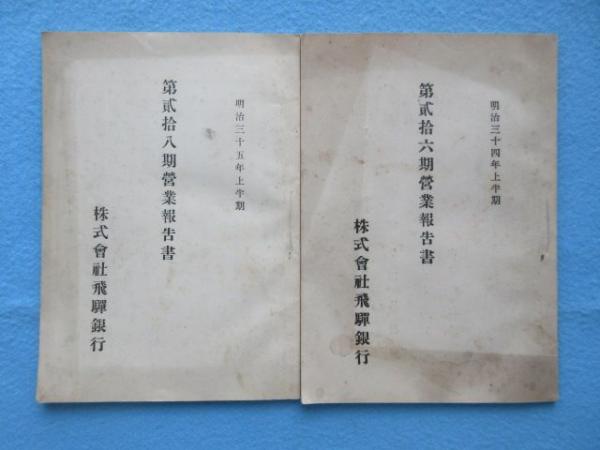 明治三十四年上半期
第貳拾六期營業報告書
株式會社飛驒銀行
明治三十五年上半期
第貳拾八期營業報告書
株式會社飛驒銀行